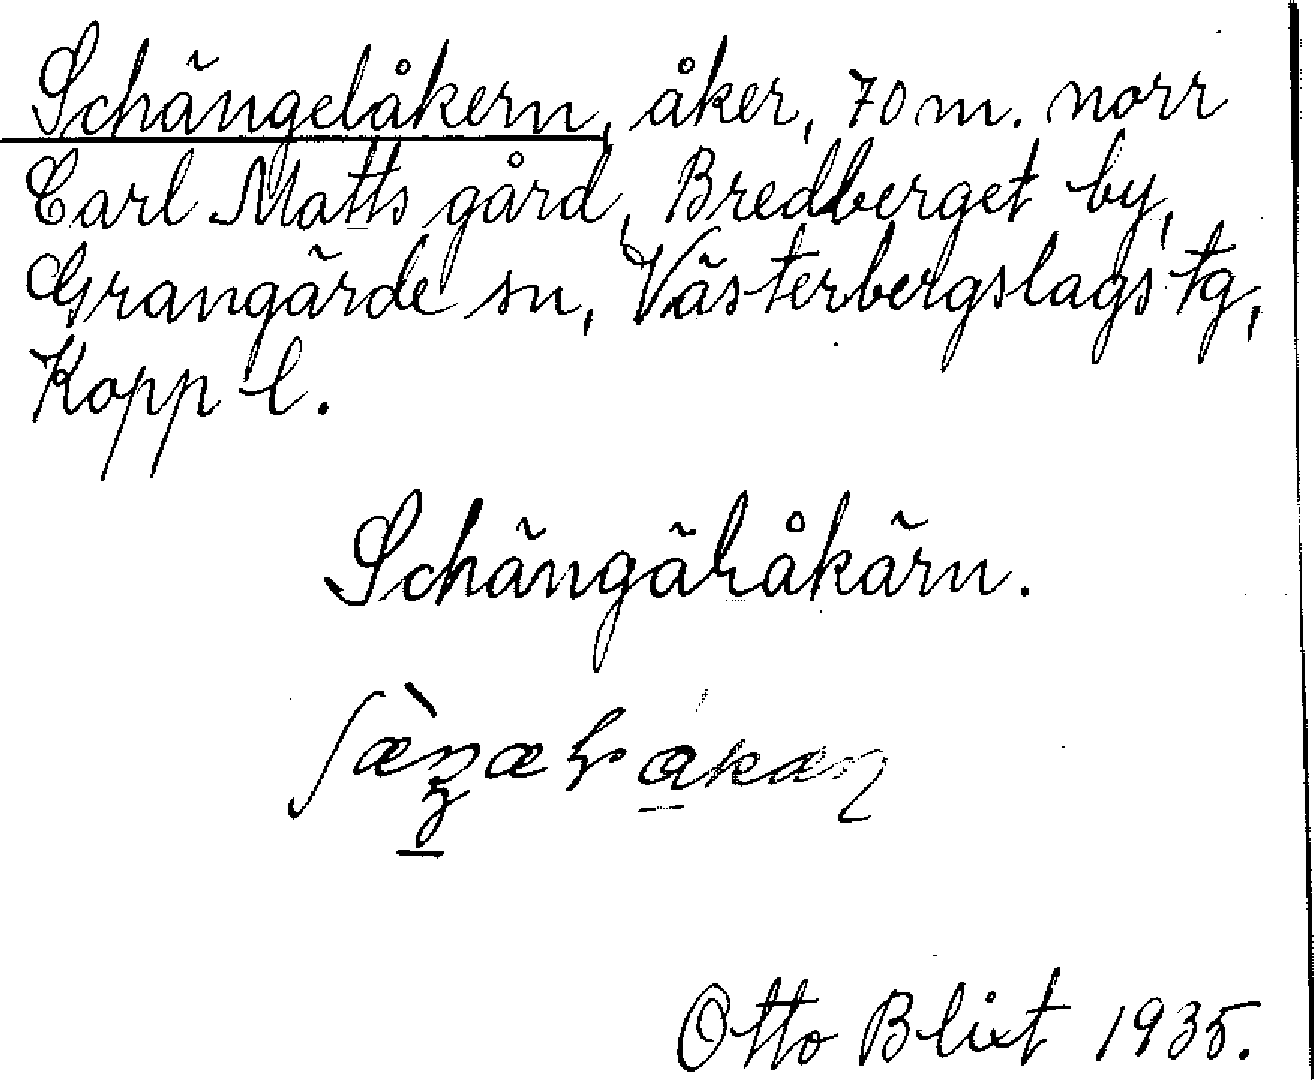 Schängelåkern, åker, 70 m. norr
Carl Matts gård, Bredberget by,
Grangärde sn, Västerbergslags tg,
Kopp l.
Schängäļåkärn.
Otto Blixt 1935.